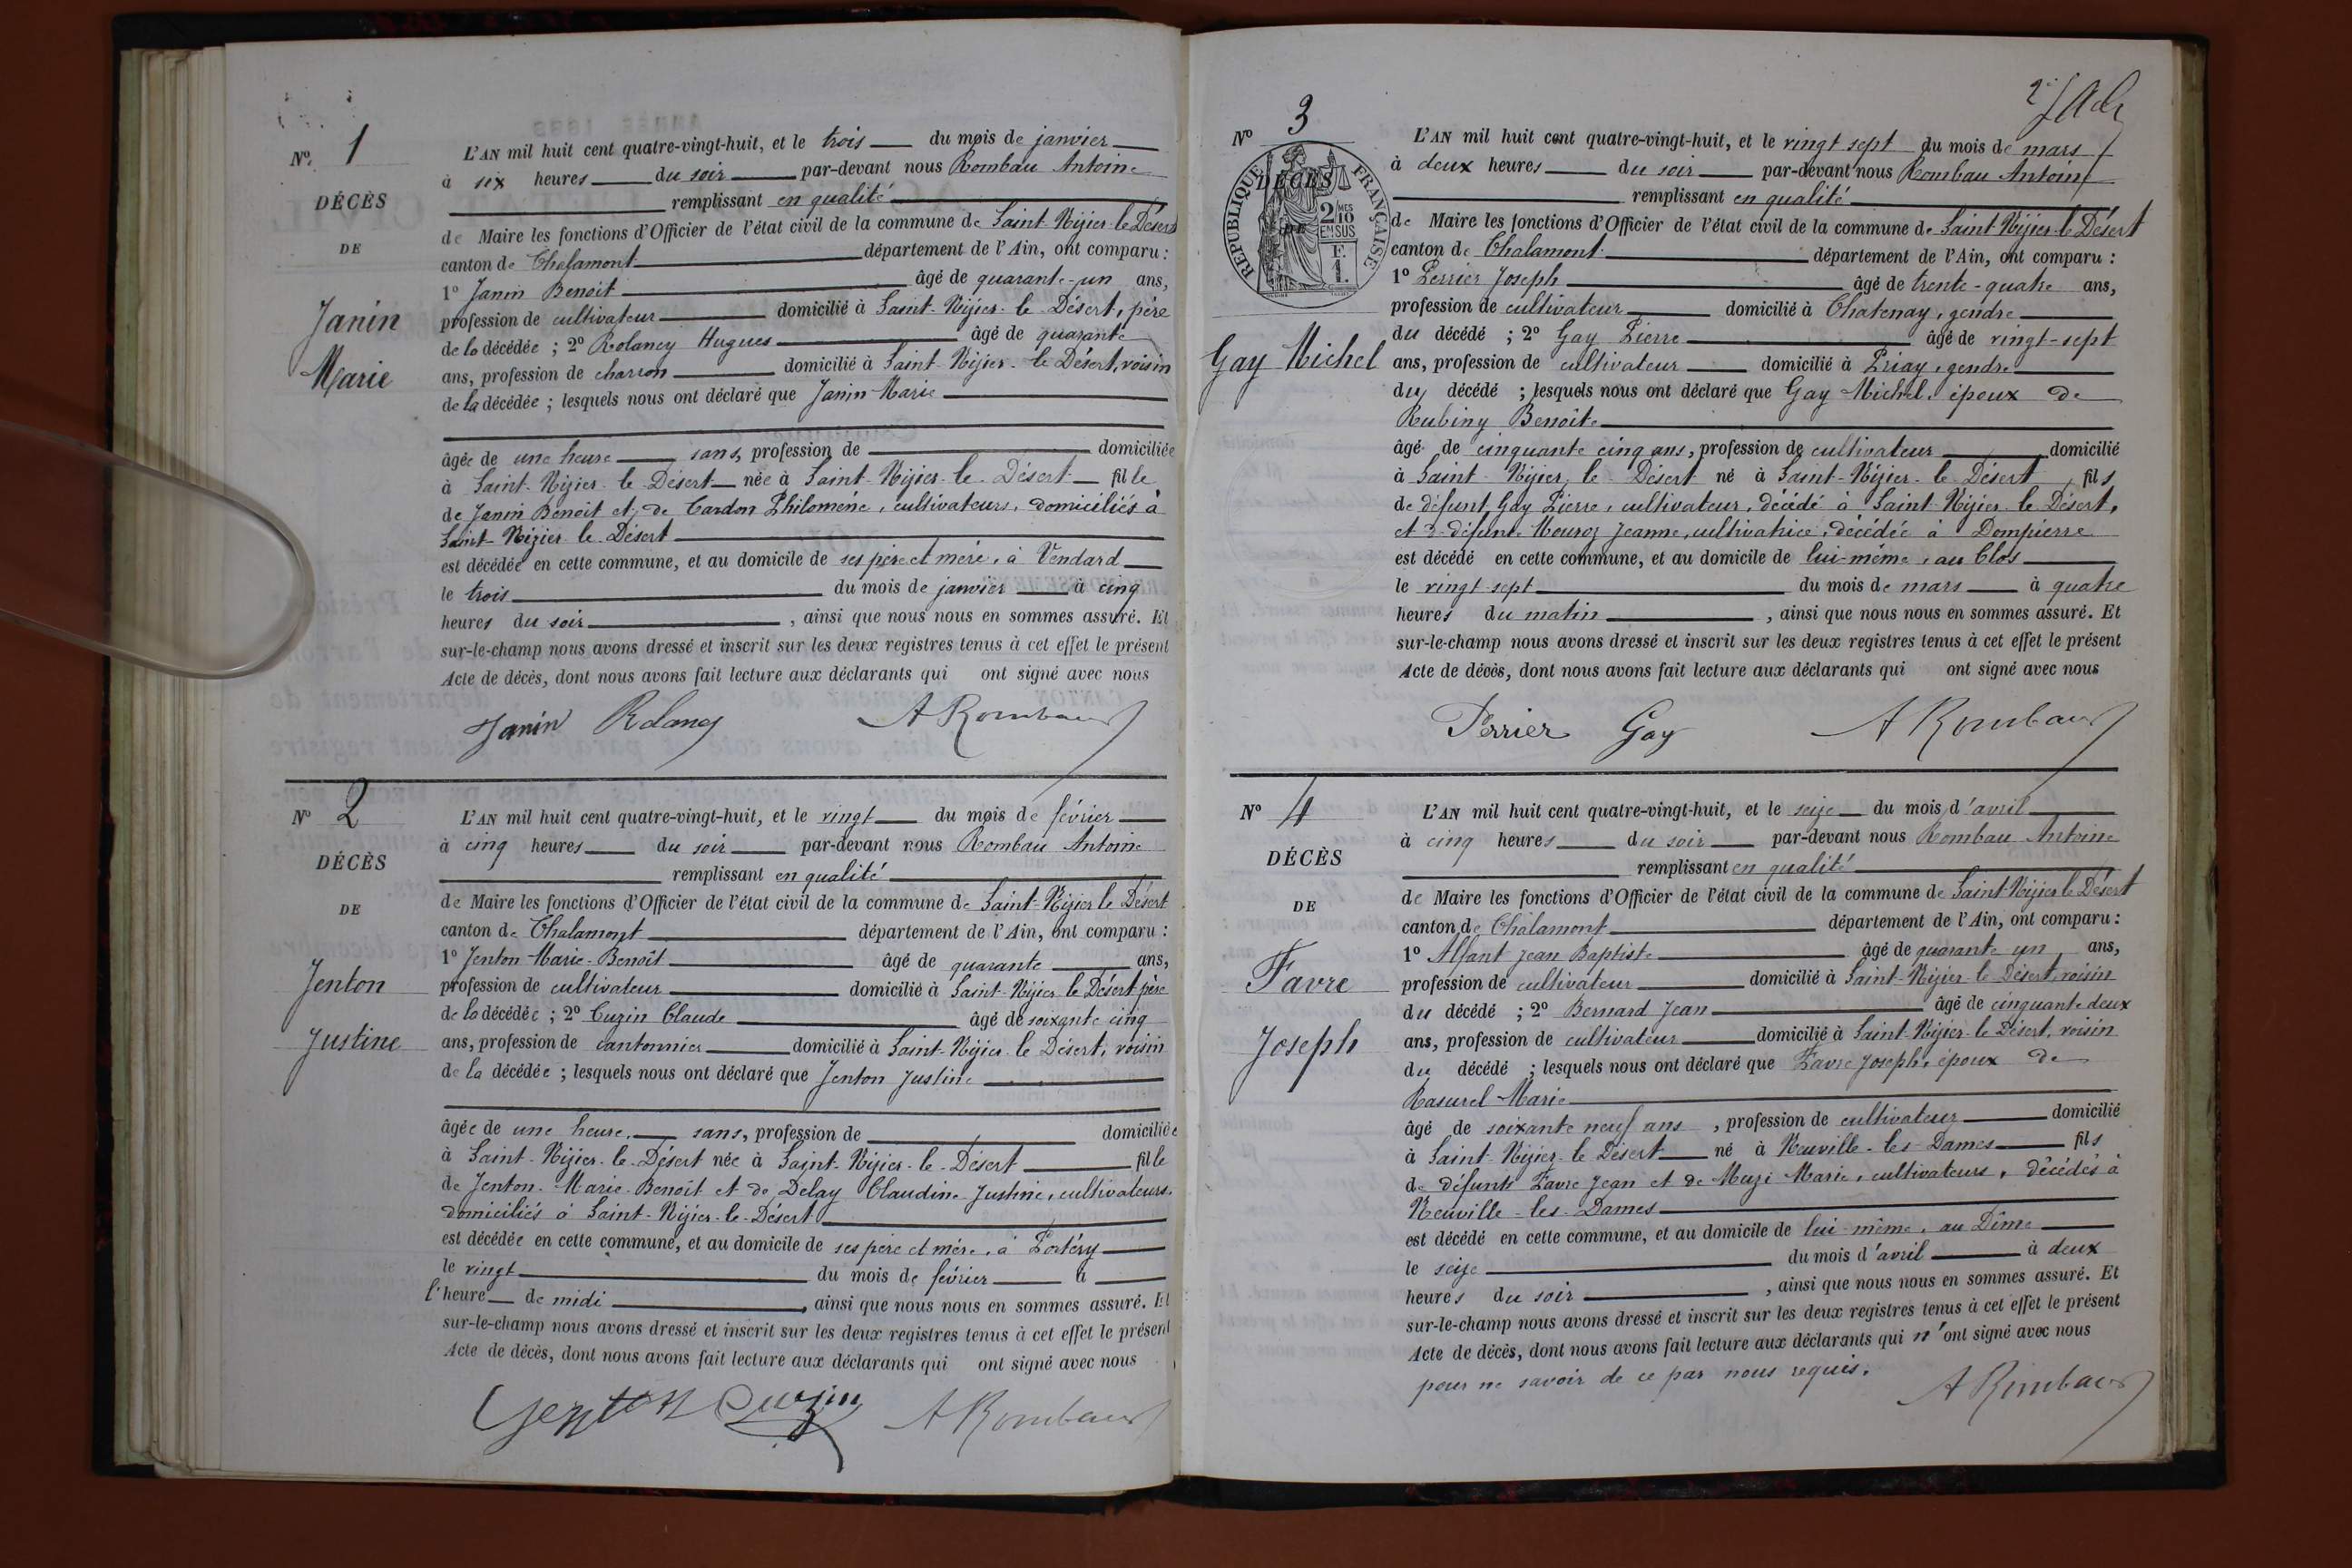 N° 1
DÉCÈS
DE
Janin
Marie
L'AN mil huit cent quatre-vingt-huit, et le trois du mois de janvier
à six heures du soir par-devant nous Rombau Antoine
remplissant en qualité
de Maire les fonctions d'Officier de l'état civil de la commune de Saint-Nizier-le-Désert
canton de Chalamont département de l'Ain, ont comparu :
1° Janin Benoit âgé de quarante-un ans,
profession de cultivateur domicilié à Saint-Nizier-le-Désert, père
de la décédée ; 2° Rolancy Hugues âgé de quarante
ans, profession de charron domicilié à Saint-Nizier-le Désert, voisin
de la décédée ; lesquels nous ont déclaré que Janin Marie
âgée de une heure sans, profession de domiciliée
à Saint-Nizier-le-Désert née à Saint-Nizier-le-Désert fille
de Janin Benoit et de Cardon Philomène, cultivateurs, domiciliés à
Saint-Nizier-le-Désert
est décédée en cette commune, et au domicile de ses père et mère, à Vendard
le trois du mois de janvier à cinq
heures du soir , ainsi que nous nous en sommes assuré. Et
sur-le-champ nous avons dressé et inscrit sur les deux registres tenus à cet effet le présent
Acte de décès, dont nous avons fait lecture aux déclarants qui ont signé avec nous
Janin Rolancy A Rombau
N° 2
DÉCÈS
DE
Jenton
Justine
L'AN mil huit cent quatre-vingt-huit, et le vingt du mois de février
à cinq heures du soir par-devant nous Rombau Antoine
remplissant en qualité
de Maire les fonctions d'Officier de l'état civil de la commune de Saint-Nizier le Désert
canton de Chalamont département de l'Ain, ont comparu :
1° Jenton Marie-Benoît âgé de quarante ans,
profession de cultivateur domicilié à Saint-Nizier le Désert père
de la décédée ; 2° Cuzin Claude âgé de soixante cinq
ans, profession de cantonnier domicilié à Saint-Nizier le Désert, voisin
de la décédée ; lesquels nous ont déclaré que Jenton Justine
âgée de une heure. sans, profession de domiciliée
à Saint-Nizier-le-Désert née à Saint-Nizier-le-Désert fille
de Jenton Marie-Benoît et de Delay Claudine Justine, cultivateurs,
domiciliés à Saint-Nizier-le-Désert
est décédée en cette commune, et au domicile de ses père et mère, à
le vingt du mois de février à
l'heure de midi , ainsi que nous nous en sommes assuré. Et
sur-le-champ nous avons dressé et inscrit sur les deux registres tenus à cet effet le présent
Acte de décès, dont nous avons fait lecture aux déclarants qui ont signé avec nous
Genton Cuzin A Rombau
2e
N° 3
RÉPUBLIQUE FRANÇAISE
DÉCÈS
DE
2/10 MES
EN SUS
F.
1.
Gay Michel
L'AN mil huit cent quatre-vingt-huit, et le vingt sept du mois de mars
à deux heures du soir par-devant nous Rombau Antoine
remplissant en qualité
de Maire les fonctions d'Officier de l'état civil de la commune de Saint-Nizier-le Désert
canton de Chalamont département de l'Ain, ont comparu :
1° Perrier Joseph âgé de trente-quatre ans,
profession de cultivateur domicilié à Chatenay, gendre
du décédé ; 2° Gay Pierre âgé de vingt-sept
ans, profession de cultivateur domicilié à Priay, gendre
du décédé ; lesquels nous ont déclaré que Gay Michel, époux de
Rubiny Benoîte
âgé de cinquante cinq ans, profession de cultivateur domicilié
à Saint-Nizier-le-Désert né à Saint-Nizier-le Désert fils
de défunt Gay Pierre, cultivateur, décédé à Saint-Nizier le Désert,
et de défunte Jeanne, cultivatrice, décédée à Dompierre
est décédé en cette commune, et au domicile de lui-même, au Clos
le vingt-sept du mois de mars à quatre
heures du matin , ainsi que nous nous en sommes assuré. Et
sur-le-champ nous avons dressé et inscrit sur les deux registres tenus à cet effet le présent
Acte de décès, dont nous avons fait lecture aux déclarants qui ont signé avec nous
Perrier Gay A Rombau
N° 4
DÉCÈS
DE
Favre
Joseph
L'AN mil huit cent quatre-vingt-huit, et le seize du mois d'avril
à cinq heures du soir par-devant nous Rombau Antoine
remplissant en qualité
de Maire les fonctions d'Officier de l'état civil de la commune de Saint-Nizier le Désert
canton de Chalamont département de l'Ain, ont comparu :
1° Alfant Jean Baptiste âgé de quarante un ans,
profession de cultivateur domicilié à Saint-Nizier-le Désert, voisin
du décédé ; 2° Bernard Jean âgé de cinquante deux
ans, profession de cultivateur domicilié à Saint-Nizier-le Désert, voisin
du décédé ; lesquels nous ont déclaré que Favre Joseph, époux de
Rasurel Marie
âgé de soixante neuf ans , profession de cultivateur domicilié
à Saint-Nizier-le Désert né à Neuville-les-Dames fils
de défunts Favre Jean et de Marie, cultivateurs, décédés à
Neuville-les-Dames
est décédé en cette commune, et au domicile de lui-même, au Dîme
le seize du mois d'avril à deux
heures du soir , ainsi que nous nous en sommes assuré. Et
sur-le-champ nous avons dressé et inscrit sur les deux registres tenus à cet effet le présent
Acte de décès, dont nous avons fait lecture aux déclarants qui n'ont signé avec nous
pour ne savoir de ce par nous requis.
A Rombau